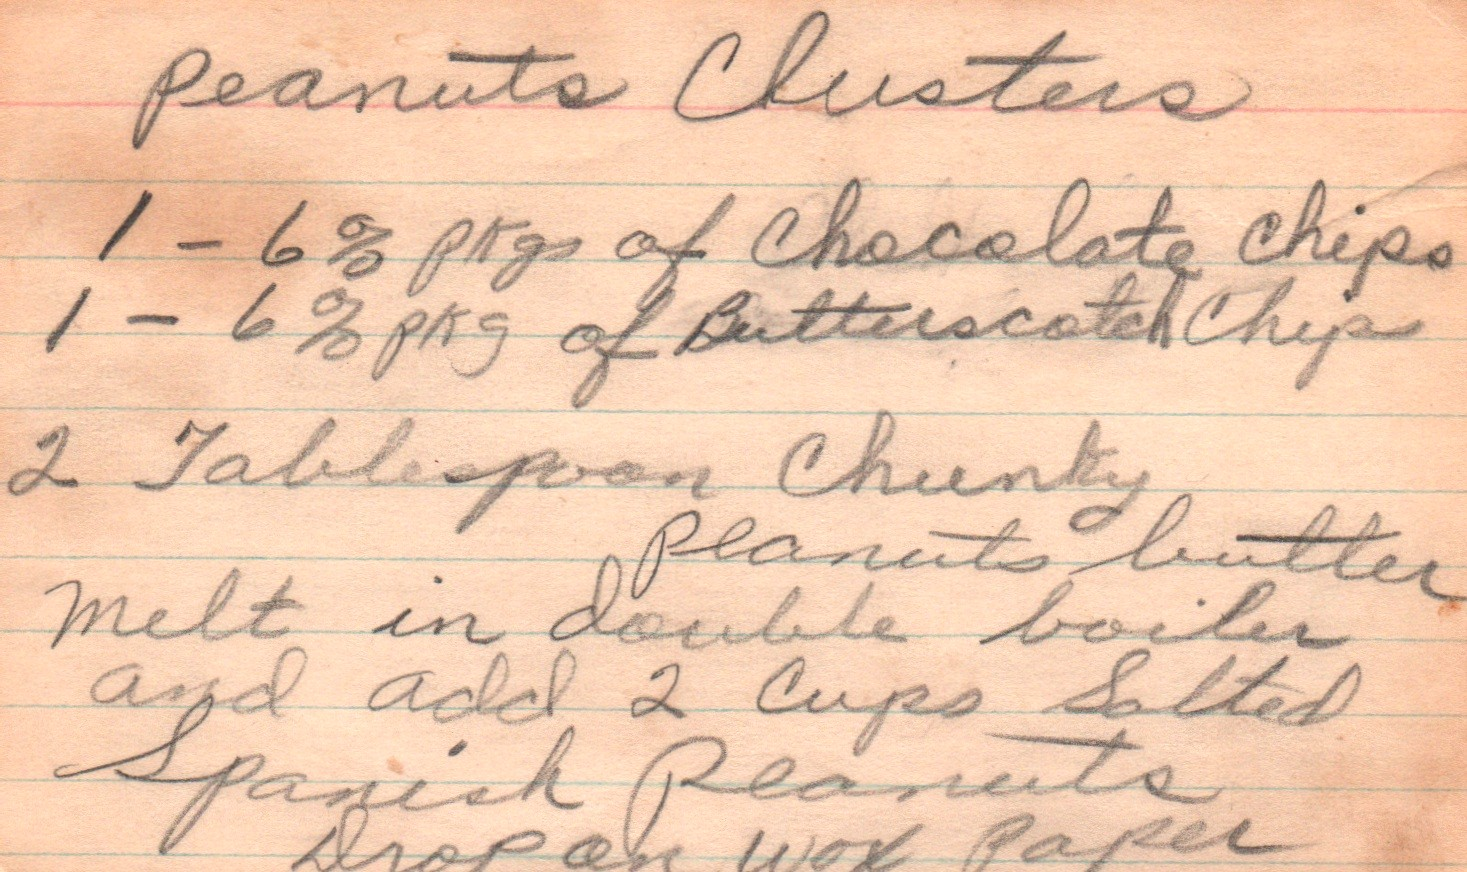 Peanuts Clusters
1 - 6 oz pkgs of Chocolate Chips
1 - 6 oz pkg of Butterscotch Chips
2 Tablespoon Chunky
Peanuts butter
Melt in double boiler
and add 2 Cups Salted
Spanish Peanuts
Drop on wox Paper